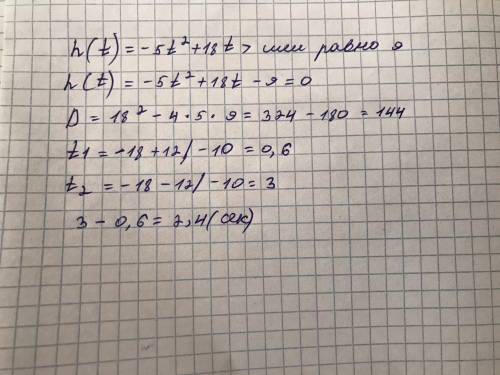 h(t) = -5t² + 18t > или равно 9
h(t) = -5t² + 18t - 9 = 0
D = 18² - 4 · 5 · 9 = 324 - 180 = 144
t1 = -18 + 12 / -10 = 0,6
t2 = -18 - 12 / -10 = 3
3 - 0,6 = 2,4 (сек)